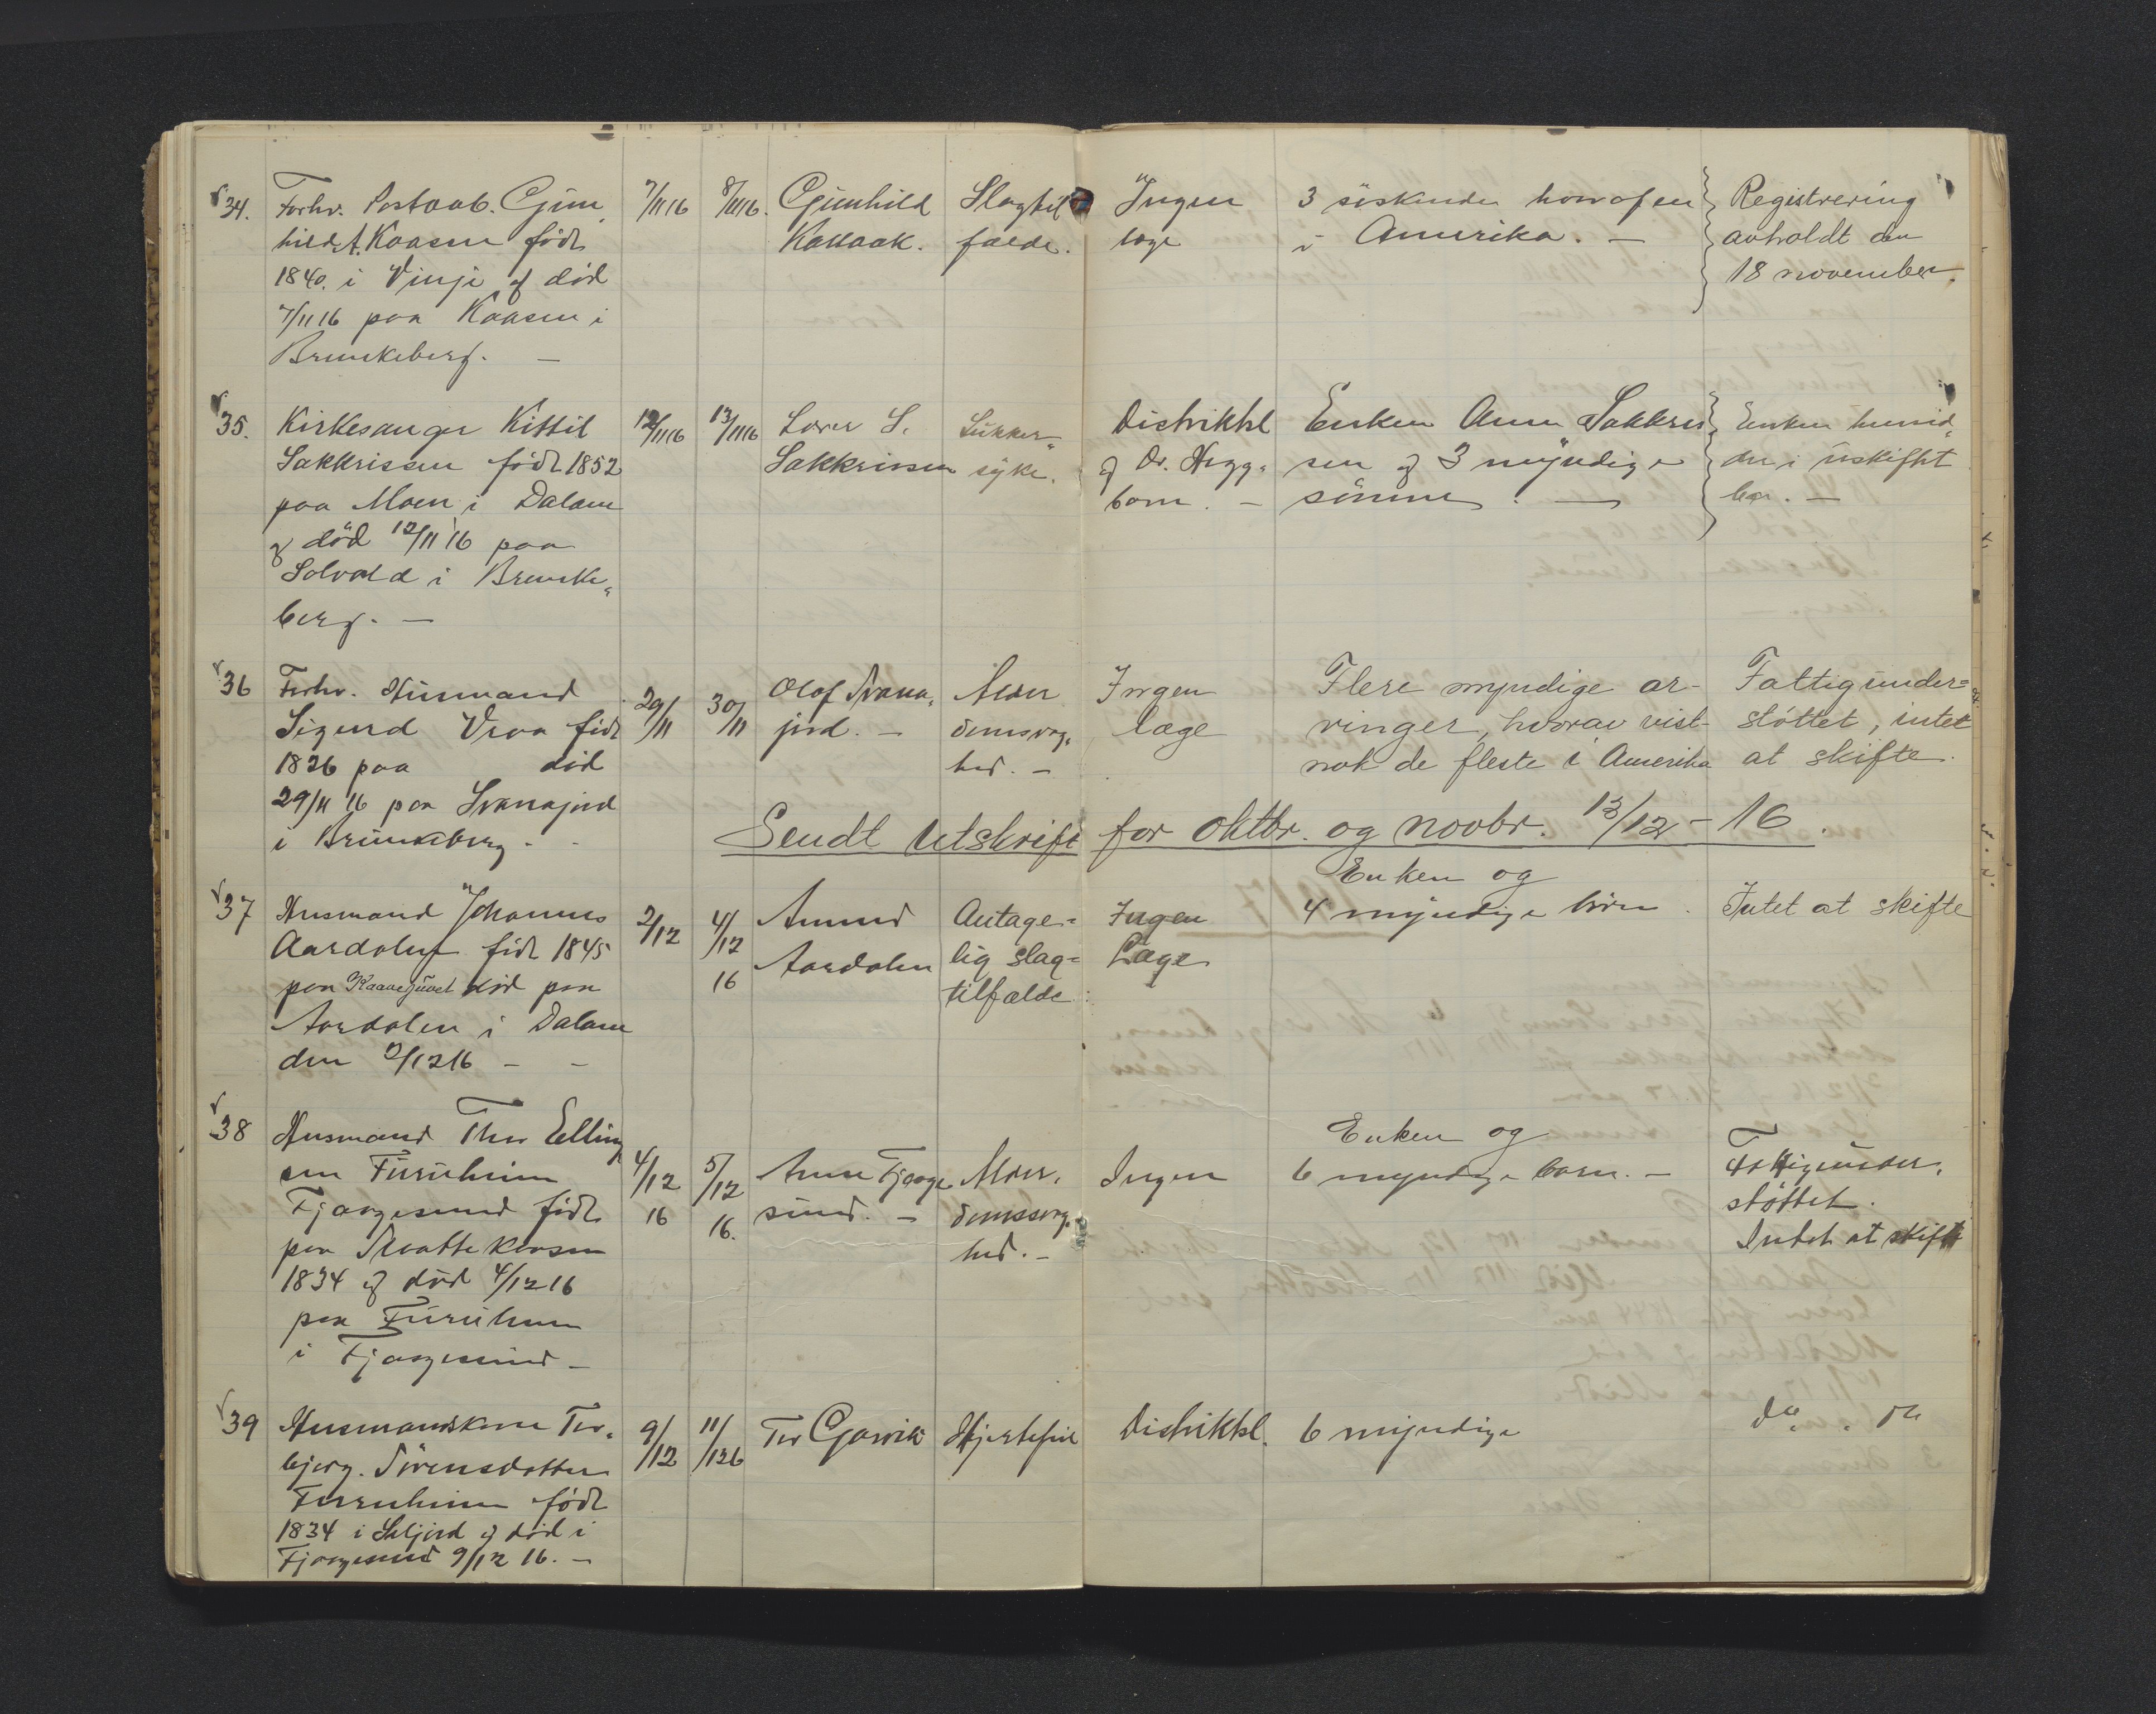 34.
Forhv. Postaab. Gun
hild A. Kaasen född
1840. i Vinje og död
7/11 16 paa Kaasen i
Brunkeberg. —
7/11 16
8/11 16.
Gunhild
Kaasen.
Slagtil
fælde.
Ingen
læge
3 söskende hvorof en
i Amerika. —
Registrering
avholdt den
18 november.
35.
Kirkesanger Kittil
Sakkrissen född 1852
paa Moen i Dalane
og död 12/11 16 paa
Solvold i Brunke„
berg. —
12/11 16
13/11 16
Lærer S.
Sakkrissen
Sukker„
syke.
Distriktsl
og Dr. Hegg„
born. —
Enken Anne Sakkris
sen og 3 myndige
sönner. —
Enken hensid„
der i uskiftet
bo. —
36
Forhv. Husmand
Sigurd Vraa född
1826 paa död
29/11 16 paa Svanajord
i Brunkeberg. -
29/11
30/11
Olaf Svana„
jord. —
Alder
domsvag„
hed. —
Ingen
læge
Flere myndige ar-
vinger, hvorav vist-
nok de fleste i Amerika
Fattigunder=
støttet, intet
at skifte.
Sendt Utskrift for oktbr. og novbr. 13/12 - 16.
37
Husmand Johannes
Aardalen född 1845
paa Kaavejuvet död paa
Aardalen i Dalane
den 2/12 16 - -
2/12
4/12
16
Amund
Aardalen
Antage=
lig slag=
tilfælde
Ingen
Læge
Enken og
4 myndige börn.
Intet at skifte
38
Husmand Thor Elling
sen Furuheim
Fjaagesund född
paa Svattekaasen
1834 og död 4/12 16
paa Furuheim
i Fjaagesund —
4/12
16
5/12
16.
Anne Fjaage
sund. —
Alder„
domssvag„
hed. —
Ingen
Enken og
6 myndige barn. —
Fattigunder„
støttet.
Intet at skifte
39
Husmandskone Tor„
bjørg. Sörensdatter
Furuheim född
1834 i Seljord og död i
Fjaagesund 9/12 16. —
9/12
11/12 6
Tor Gaarvik
Hjertefeil
Distriktsl.
6 myndige
do. do